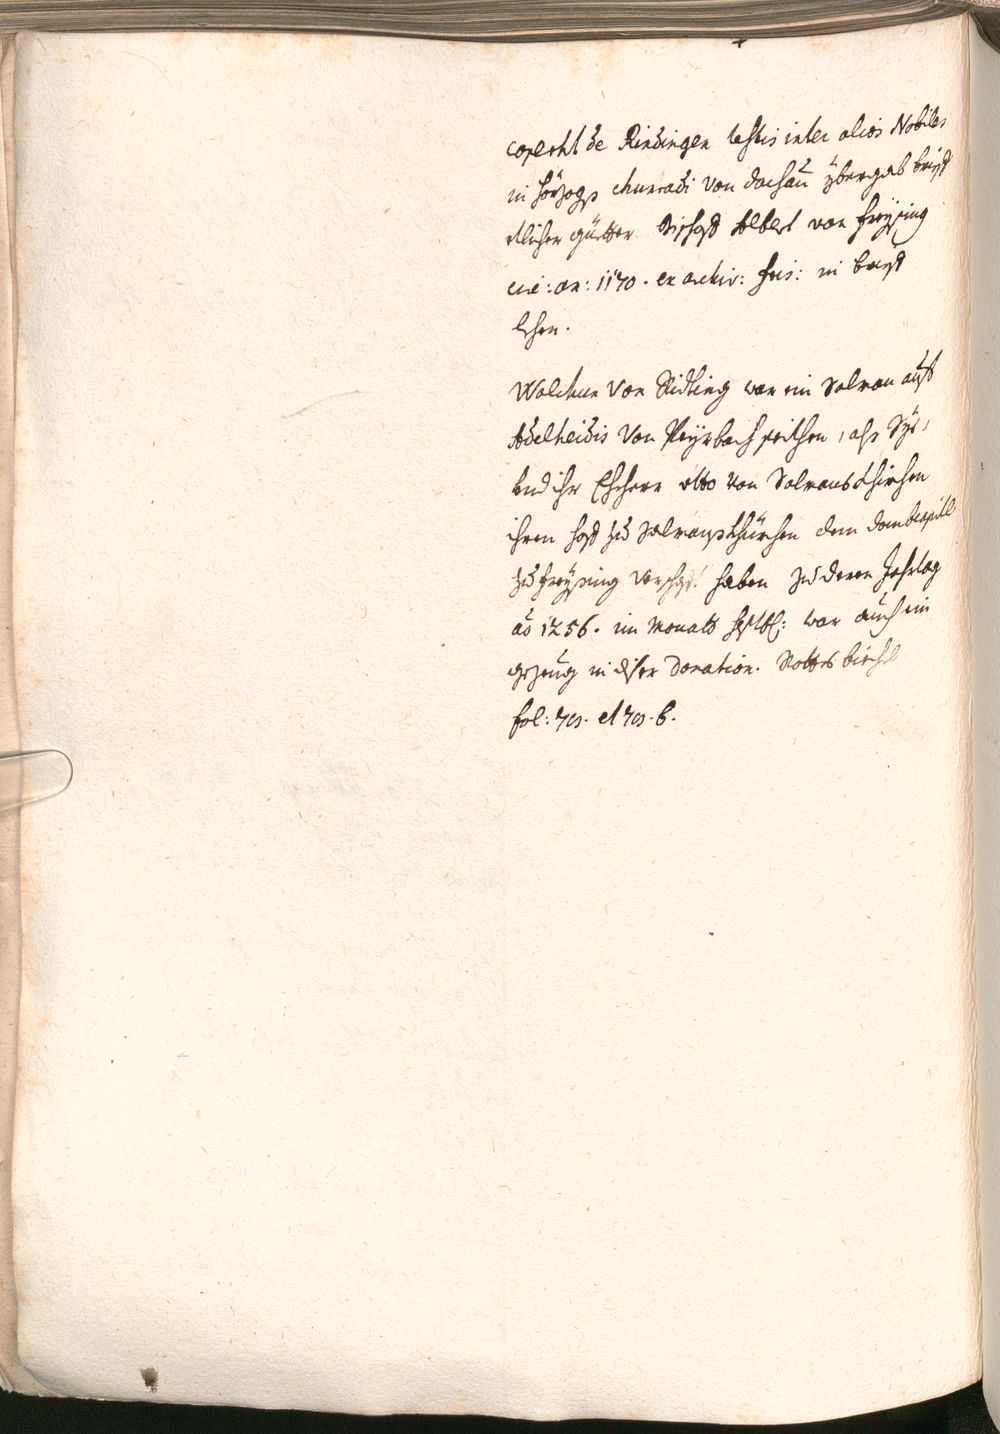 coperht de Ridingen testis inter alios Nobiles
in Herzogs Chunradi von Dachau übergab
etlicher güetter Bischof Albert von Freysing
an: 1170. ex archiv: fris: in
lehen.
Walchun von Riding war ein Salman auf
Adelheidis von Peyrbach seithen, als Sye,
und ihr Eheherr otto von Salmanskhirchen
ihren hof zu Salmanskhürchen dem dombcapitl
zu Freysing verschaft haben zu deren Jahrtag
ao 1256. im Monath septbr: war auch ein
gezeug in diser Donation. Rottes biechl
fol: 79. et 79. b.